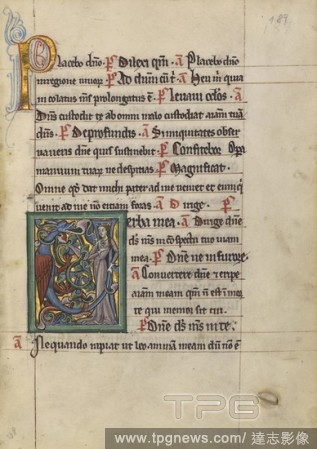 189
Placebo dno. ps Dilexi qm. a Placebo dno
in regione uiuor. ps Ad dnm cu t. a Heu m quia
incolatus ms prolongatus e. ps Leuaui oclos. a
Dns custodit te ab omni malo custodiat aiam tua
dns. ps De profundis. a Si iniquitates obser
uaueris dne quis sustinebit. ps Confitebor. Opa
manuum tuar ne despicias. ps Magnificat.
Omne qd dat michi pater ad me ueniet et eum q
uenit ad me no eiciam foras. a Dirige. ps
Verba mea. a Dirige dne
ds ms in conspectu tuo uiam
mea. ps Dne ne in furore.
a Conuertere dne et eripe
aiam meam qm n est i mor
te qui memor sit tui.
ps Dne ds ms in te.
a Ne quando rapiat ut leo animam meam du no e
TPG
www.tpgnews.com/達志影像